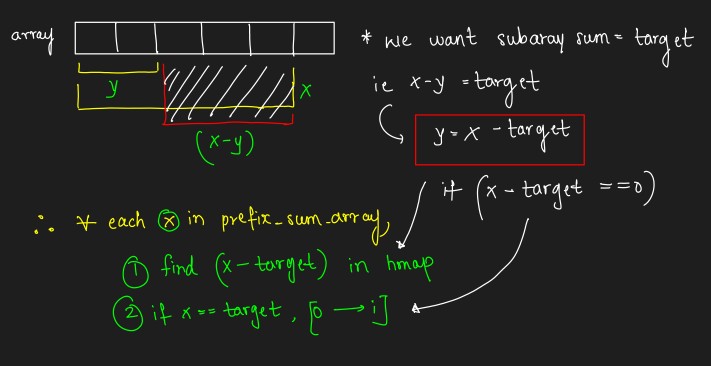 array
* we want subaray sum = target
ie x-y = target
y
x
(x-y)
y = x - target
if (x - target ==0)
∴ ∀ each x in prefix_sum_array,
① find (x-target) in hmap
② if x == target, [0 → i]